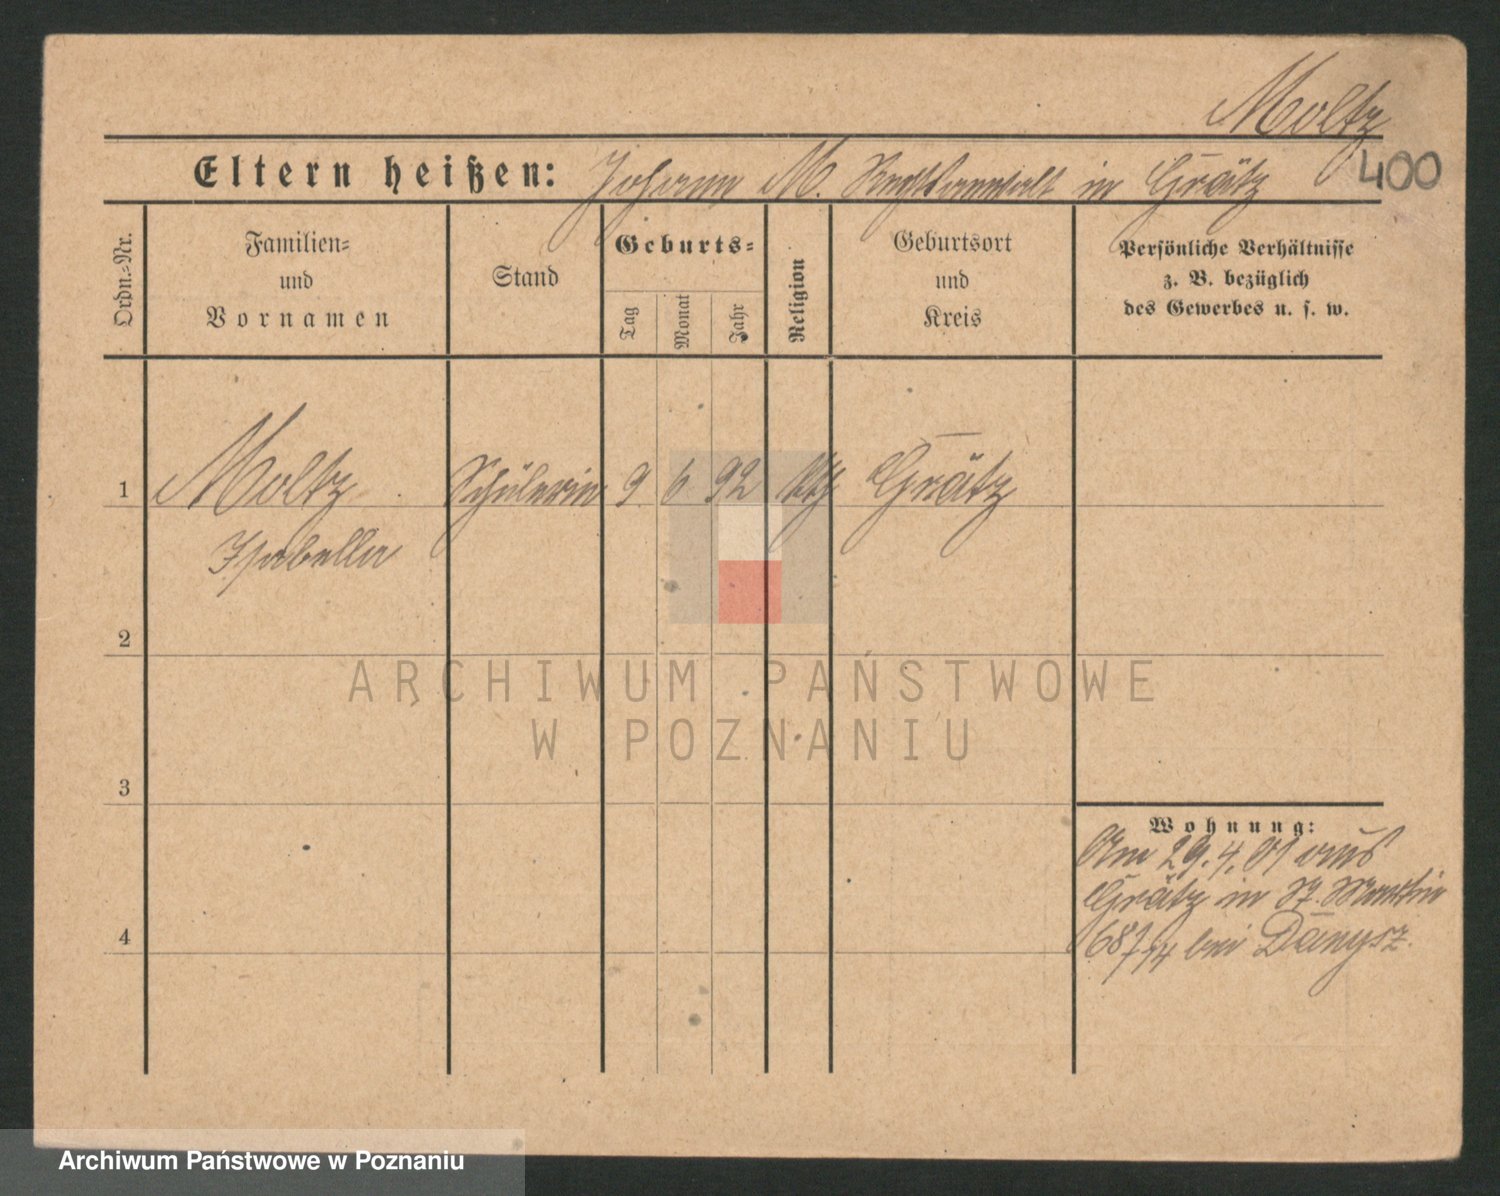 Moltz
400
Eltern heißen: Johann M. Rechtsanwalt in Grätz
Ordn.-Nr.
Familien-
und
Vornamen
Stand
Geburts-
Tag
Monat
Jahr
Religion
Geburtsort
und
Kreis
Persönliche Verhältnisse
z. B. bezüglich
des Gewerbes u. s. w.
1 Moltz Schülerin 9 6 92 kth Grätz
Isabella
2
3
4
Wohnung:
Am 29.4.01 aus
Grätz in St. Martin
68/74 bei Danysz.
ARCHIWUM PAŃSTWOWE
W POZNANIU
Archiwum Państwowe w Poznaniu